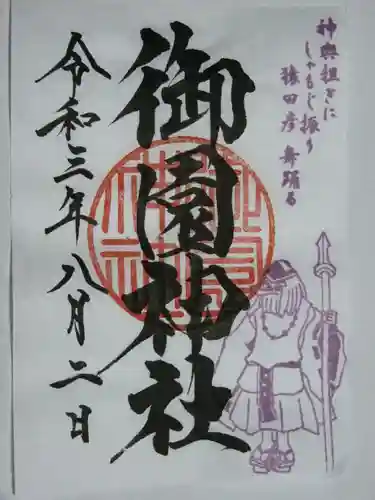 神輿担ぎに
しゃもじ振り
猿田彦舞踊る
御園神社
令和三年八月二日